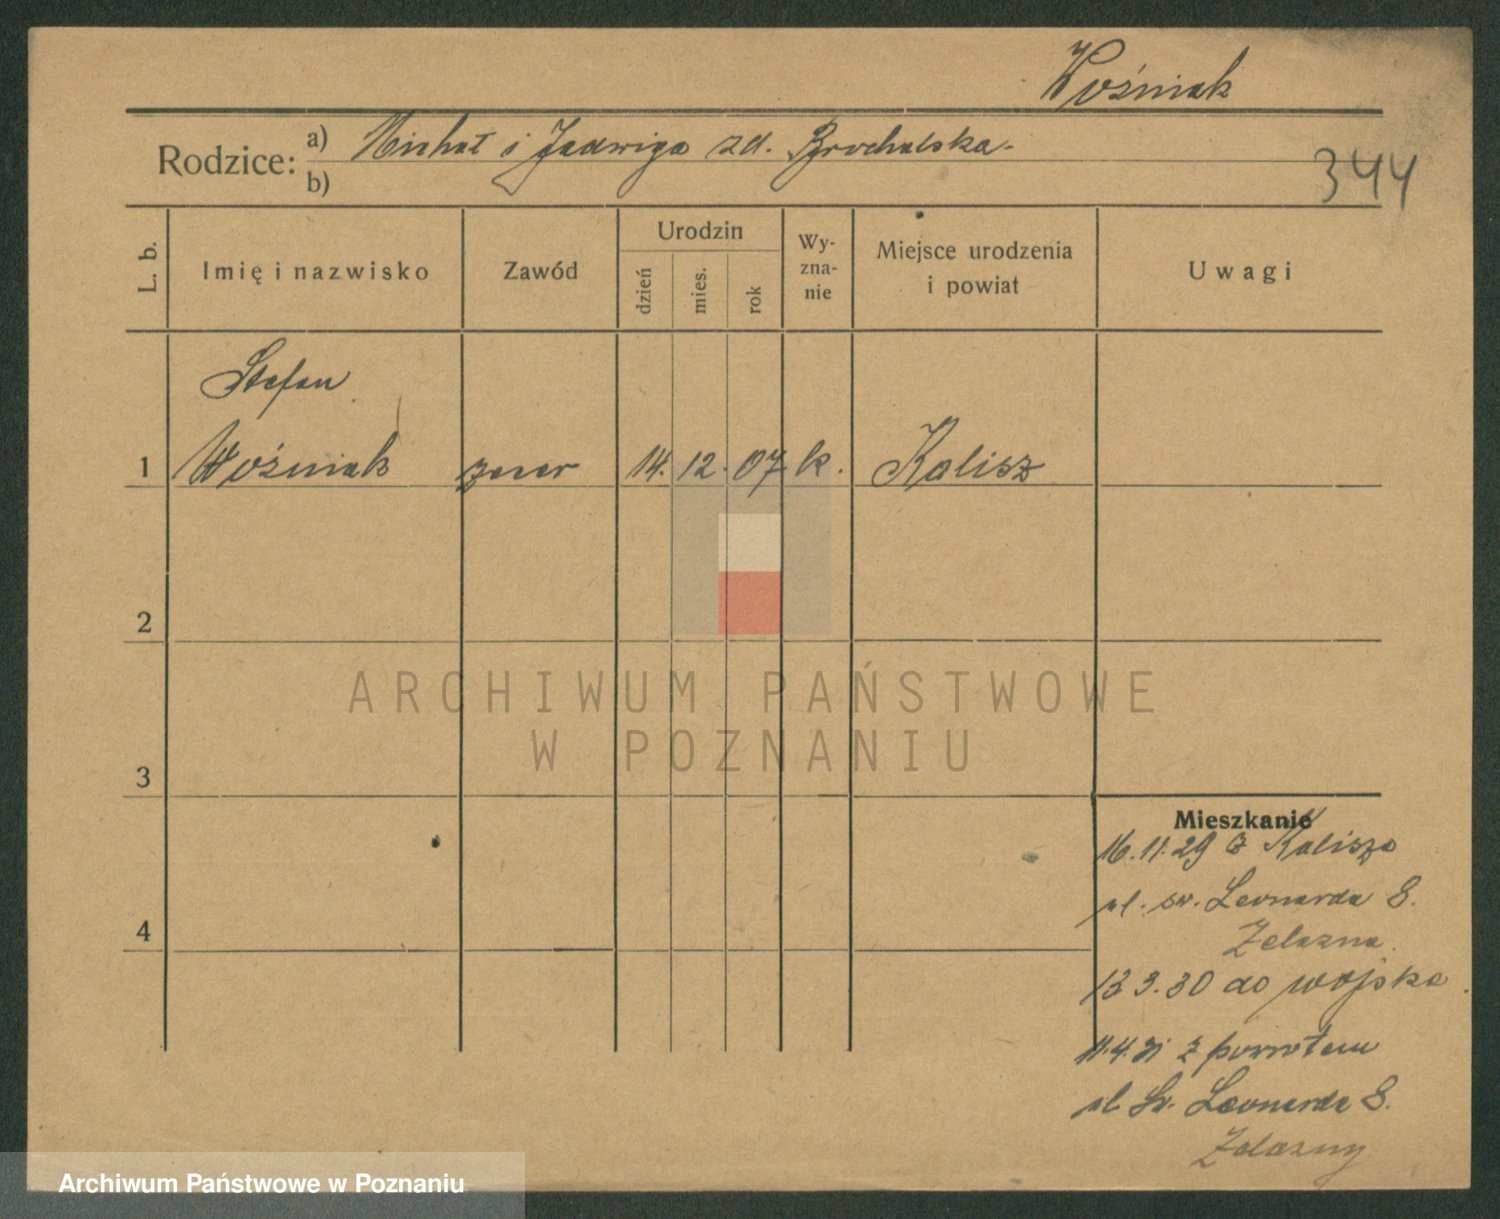 Woźniak
Rodzice: a) Michał i Jadwiga zd. Brochalska.
b)
344
L. b. Imię i nazwisko Zawód Urodzin dzień mies. rok Wy-zna-nie Miejsce urodzenia i powiat Uwagi
Stefan
1 Woźniak zecer 14. 12. 07 k. Kalisz
2
3
4
Mieszkanie
16.11.29 z Kalisza
ul. św. Leonarda 8.
Żelazna.
13 3.30 do wojska.
11.4.31 z powrotem
ul. Św. Leonarda 8.
Żelazny
ARCHIWUM PAŃSTWOWE
W POZNANIU
Archiwum Państwowe w Poznaniu